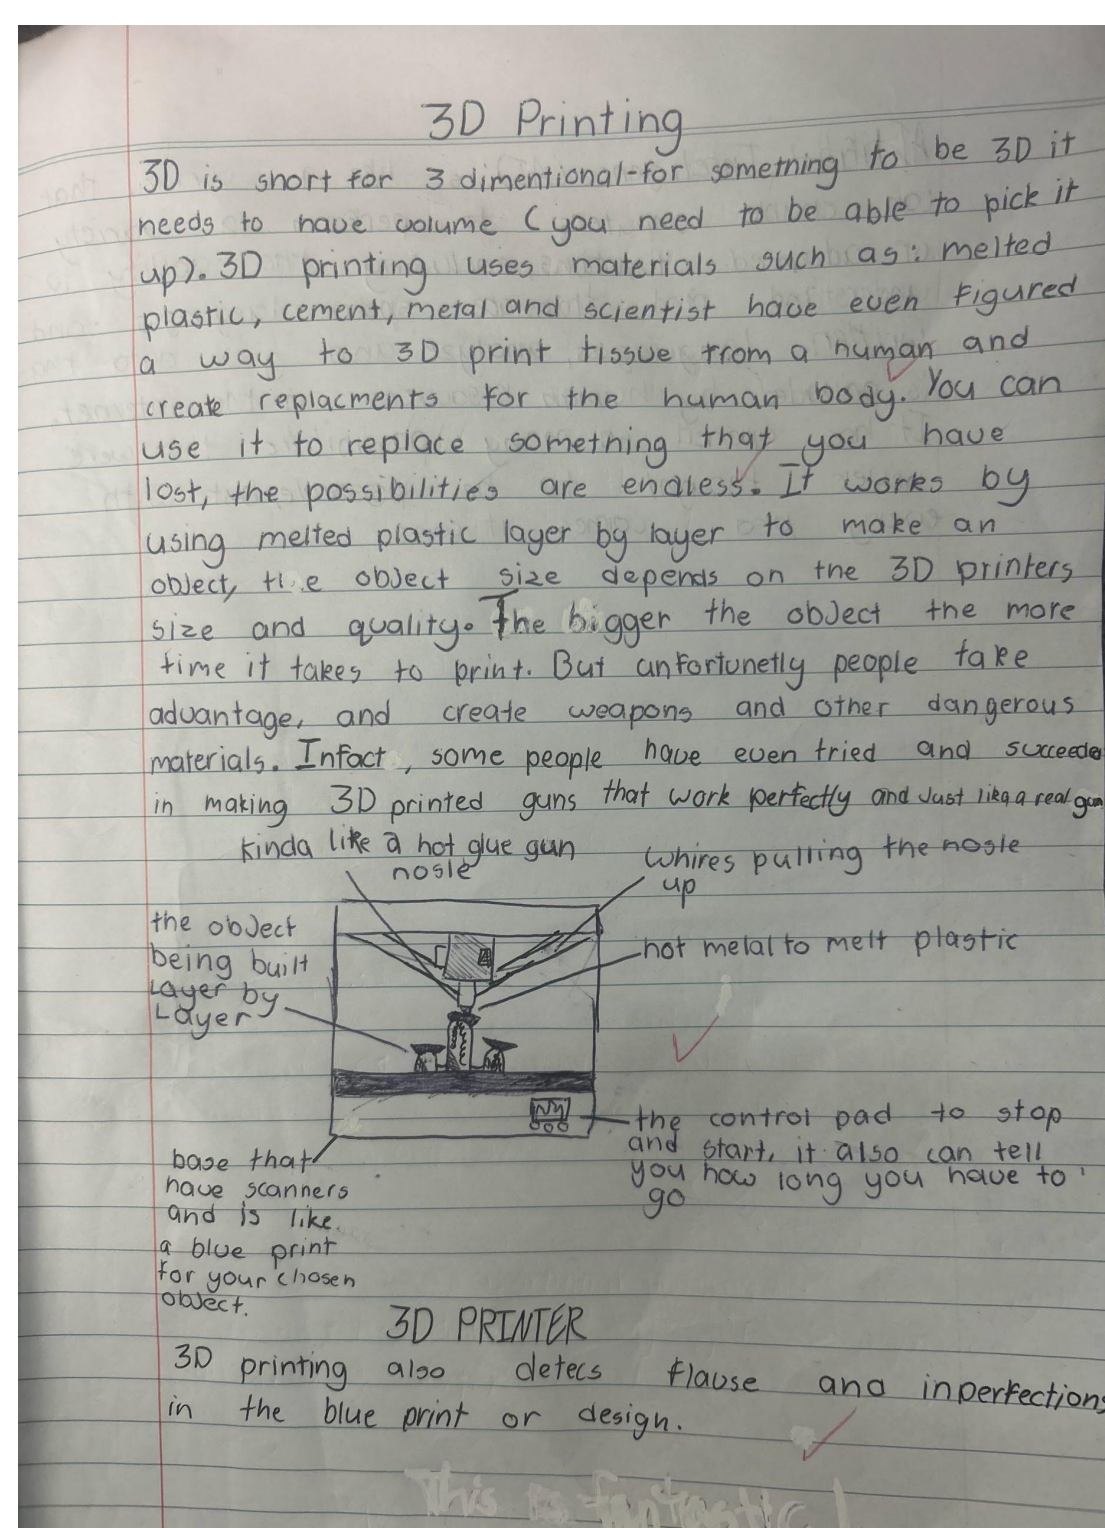 3D Printing
3D is short for 3 dimentional-for something to be 3D it
needs to have volume (you need to be able to pick it
up). 3D printing uses materials such as: melted
plastic, cement, metal and scientist have even figured
a way to 3D print tissue from a human and
create replacments for the human body. You can
use it to replace something that you have
lost, the possibilities are endless. It works by
using melted plastic layer by layer to make an
object, the object size depends on the 3D printers
size and quality. The bigger the object the more
time it takes to print. But unfortunetly people take
advantage, and create weapons and other dangerous
materials. Infact, some people have even tried and succeede
in making 3D printed guns that work perfectly and Just like a real gun
kinda like a hot glue gun
nosle
whires pulling the nosle
up
the object
being built
Layer by
Layer
hot metal to melt plastic
the control pad to stop
and start, it also can tell
you how long you have to
go
base that
have scanners
and is like
a blue print
for your chosen
object.
3D PRINTER
3D printing also detecs flause and inperfections
in the blue print or design.
This is fantastic!